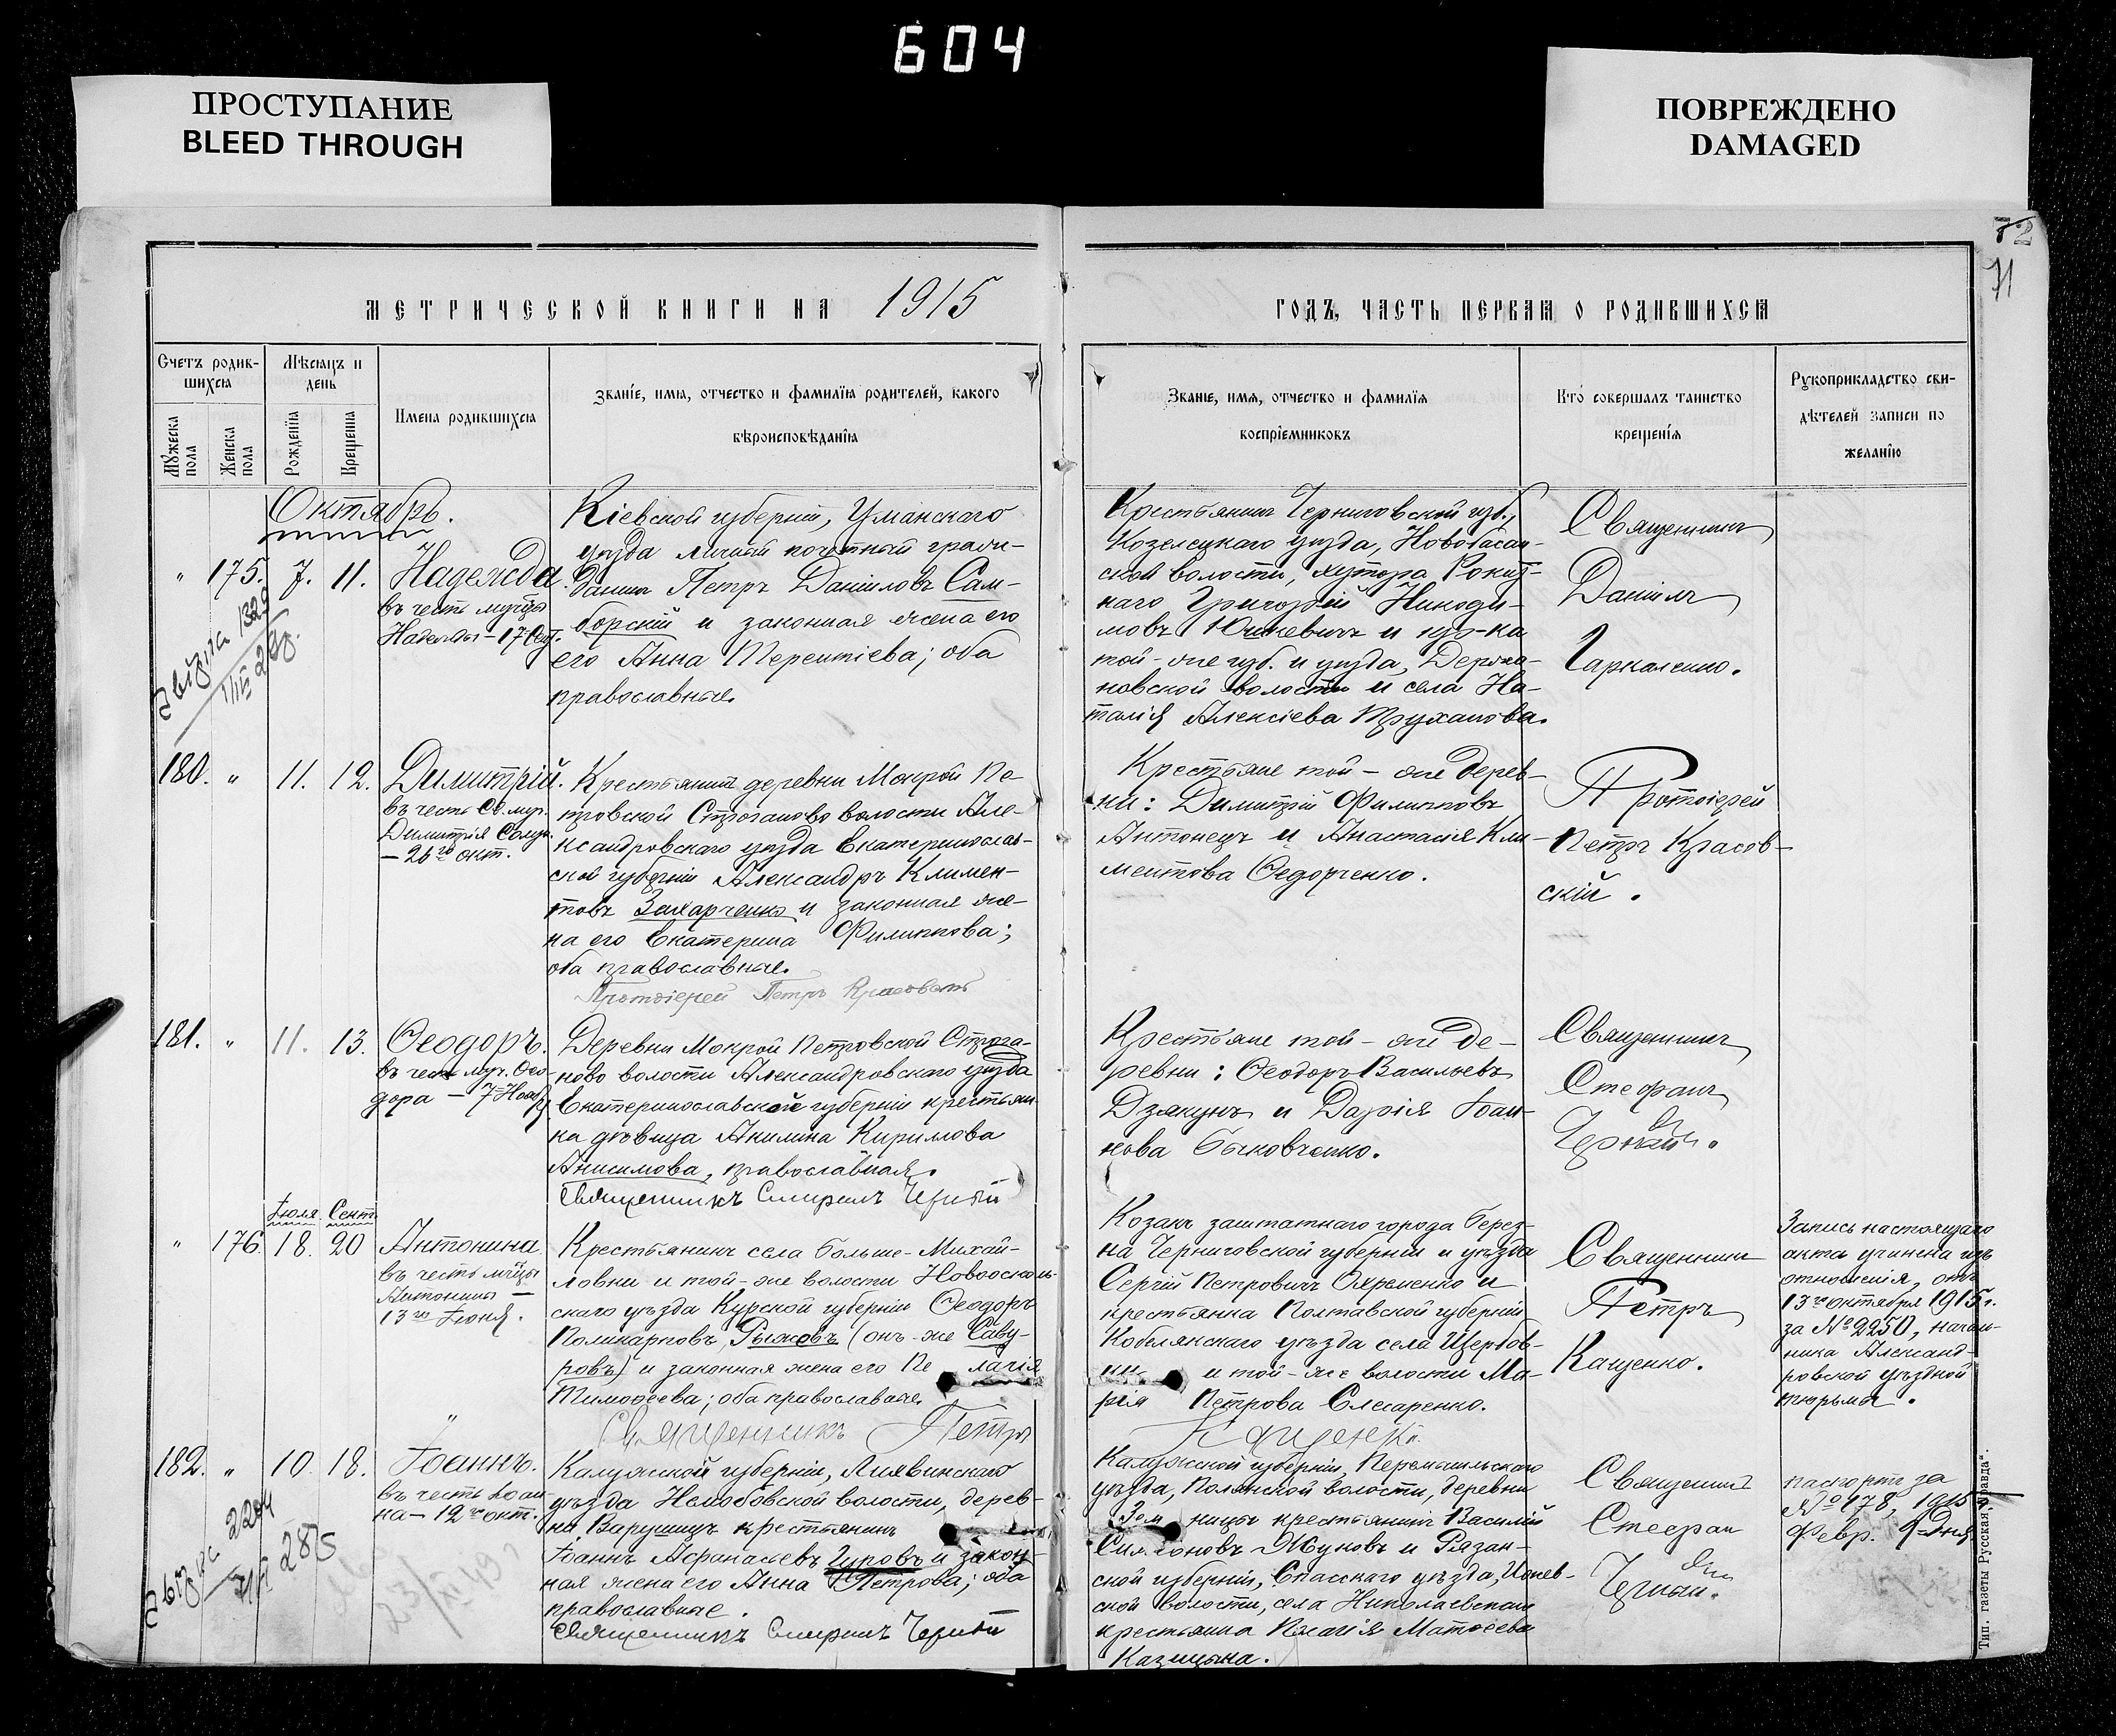 604
ПРОСТУПАНИЕ
BLEED THROUGH
ПОВРЕЖДЕНО
DAMAGED
72
71
МЕТРИЧЕСКОЙ КНИГИ НА 1915
ГОДЪ, ЧАСТЬ ПЕРВАЯ О РОДИВШИХСЯ
Счетъ родив-
шихся
Мужеска пола
Женска пола
Мѣсяцъ и
день
Рожденія
Крещенія
Имена родившихся
Званіе, имя, отчество и фамилія родителей, какого
вѣроисповѣданія
Званіе, имя, отчество и фамилія
воспріемниковъ
Кто совершалъ таинство
крещенія
Рукоприкладство сви-
дѣтелей записи по
желанію
Октябрь.
" 175. 7. 11.
Надежда
въ честь муч-цы
Надежды – 17 Сент.
Кіевской губерніи, Уманскаго
уѣзда личный почетный граж-
данинъ Петръ Даніиловъ Сам-
борскій и законная жена его
его Анна Терентіева; оба
православные.
Крестьянинъ Черниговской губ.,
Козелецкаго уѣзда, Новобасан-
ской волости, хутора
Григорій Никоди-
мовъ Юшкевичъ и кр-ка
той-же губ. и уѣзда,
новской волости и села На-
талія Алексіева Труханова.
Священникъ
Даніилъ
Гаркаленко.
180. " 11. 12.
Димитрій.
въ честь Св. муч.
Димитрія Солун.
– 26го окт.
Крестьянинъ деревни Мокрой Пе-
тровской Строганово волости Але-
ксандровскаго уѣзда Екатеринослав-
ской губерніи Александръ Климен-
товъ Захарченко и законная же-
на его Екатерина Филиппова;
оба православные.
Протоіерей Петръ Красовскій
Крестьяне той-же дерев-
ни: Димитрій Филипповъ
Антонецъ и Анастасія Кли-
ментова Ѳедорченко.
Протоіерей
Петръ Красов-
скій.
181. " 11. 13.
Ѳеодоръ.
въ честь муч. Ѳео-
дора – 7 Нояб.
Деревни Мокрой Петровской Строга-
ново волости Александровскаго уѣзда
Екатеринославской губерніи крестьян-
ка дѣвица Акилина Кириллова
Анисимова, православная.
Священникъ Стефанъ Черный
Крестьяне той-же де-
ревни: Ѳеодоръ Васильевъ
Дзякунъ и Дарія Іоан-
нова Быковченко.
Священникъ
Стефанъ
Черный.
Іюля Сент.
" 176. 18. 20
Антонина
въ честь мч-цы
Антонины –
13го Іюня.
Крестьянинъ села Больше-Михай-
ловки и той-же волости Новооскол-
скаго уѣзда Курской губерніи Ѳеодоръ
Поликарповъ Рыжовъ (онъ-же Саву-
ровъ) и законная жена его Пе лагія
Тимоѳеева; оба православные.
Священникъ Петръ
Кащенко.
Козакъ заштатнаго города Берез-
на Черниговской губерніи и уѣзда
Сергій Петровичъ Яременко и
крестьянка Полтавской губерніи
Кобелякскаго уѣзда села
и той-же волости Ма-
рія Петрова Слесаренко.
Священникъ
Петръ
Кащенко.
Запись настоящаго
акта учинена изъ
отношенія, отъ
13го октября 1915 г.
за № 2250, началь-
ника Александ-
ровской уѣздной
тюрьмы.
182. " 10. 18.
Іоаннъ.
въ честь Іоан-
на – 12го окт.
Калужской губерніи, Лихвинскаго
уѣзда волости, дерев-
ни Варушицъ крестьянинъ
Іоаннъ Аѳанасьевъ Гуровъ и закон-
ная жена его Анна Петрова; оба
православные.
Священникъ Стефанъ Черный
Калужской губерніи, Перемышльскаго
уѣзда, Полянской волости, деревни
крестьянинъ Василій
Симеоновъ Жуковъ и Рязан-
ской губерніи, Спасскаго уѣзда,
ской волости, села Николаевскаго
крестьянка Пелагія Матѳеева
Казицына.
Священникъ
Стефанъ
Черный.
паспортъ за
№ 178, 1915 г.
Февр. 9 дня
Тип. газеты „Русская Правда".